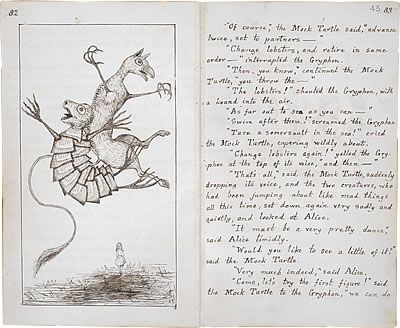 82
43 83
"Of course," the Mock Turtle said, "advance
twice, set to partners —"
"Change lobsters, and retire in same
order —" interrupted the Gryphon.
"Then, you know," continued the Mock
Turtle, "you throw the —"
"The lobsters!" shouted the Gryphon, with
a bound into the air.
"As far out to sea as you can —"
"Swim after them!" screamed the Gryphon.
"Turn a somersault in the sea!" cried
the Mock Turtle, capering wildly about.
"Change lobsters again!" yelled the Gry-
phon at the top of its voice, "and then —"
"That's all," said the Mock Turtle, suddenly
dropping its voice, and the two creatures, who
had been jumping about like mad things
all this time, sat down again very sadly and
quietly, and looked at Alice.
"It must be a very pretty dance,"
said Alice timidly.
"Would you like to see a little of it?"
said the Mock Turtle.
"Very much indeed," said Alice.
"Come, let's try the first figure!" said
the Mock Turtle to the Gryphon, "we can do